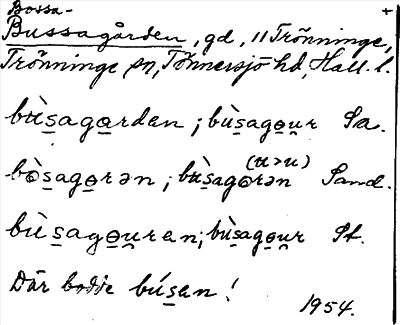 Bossa- +
Bussagården, gd, 11 Trönninge,
Trönninge sn, Tönnersjö hd, Hall. l.
bùs̱agɑrdən ; bùs̱agɵu̯r Sa.
bòs̱agɵrən ; bùs̱agɵrən (u>u) Sand.
bùs̱agɵu̯ren; bùs̱agɵu̯r St.
Där bodde bús̱en!
1954.